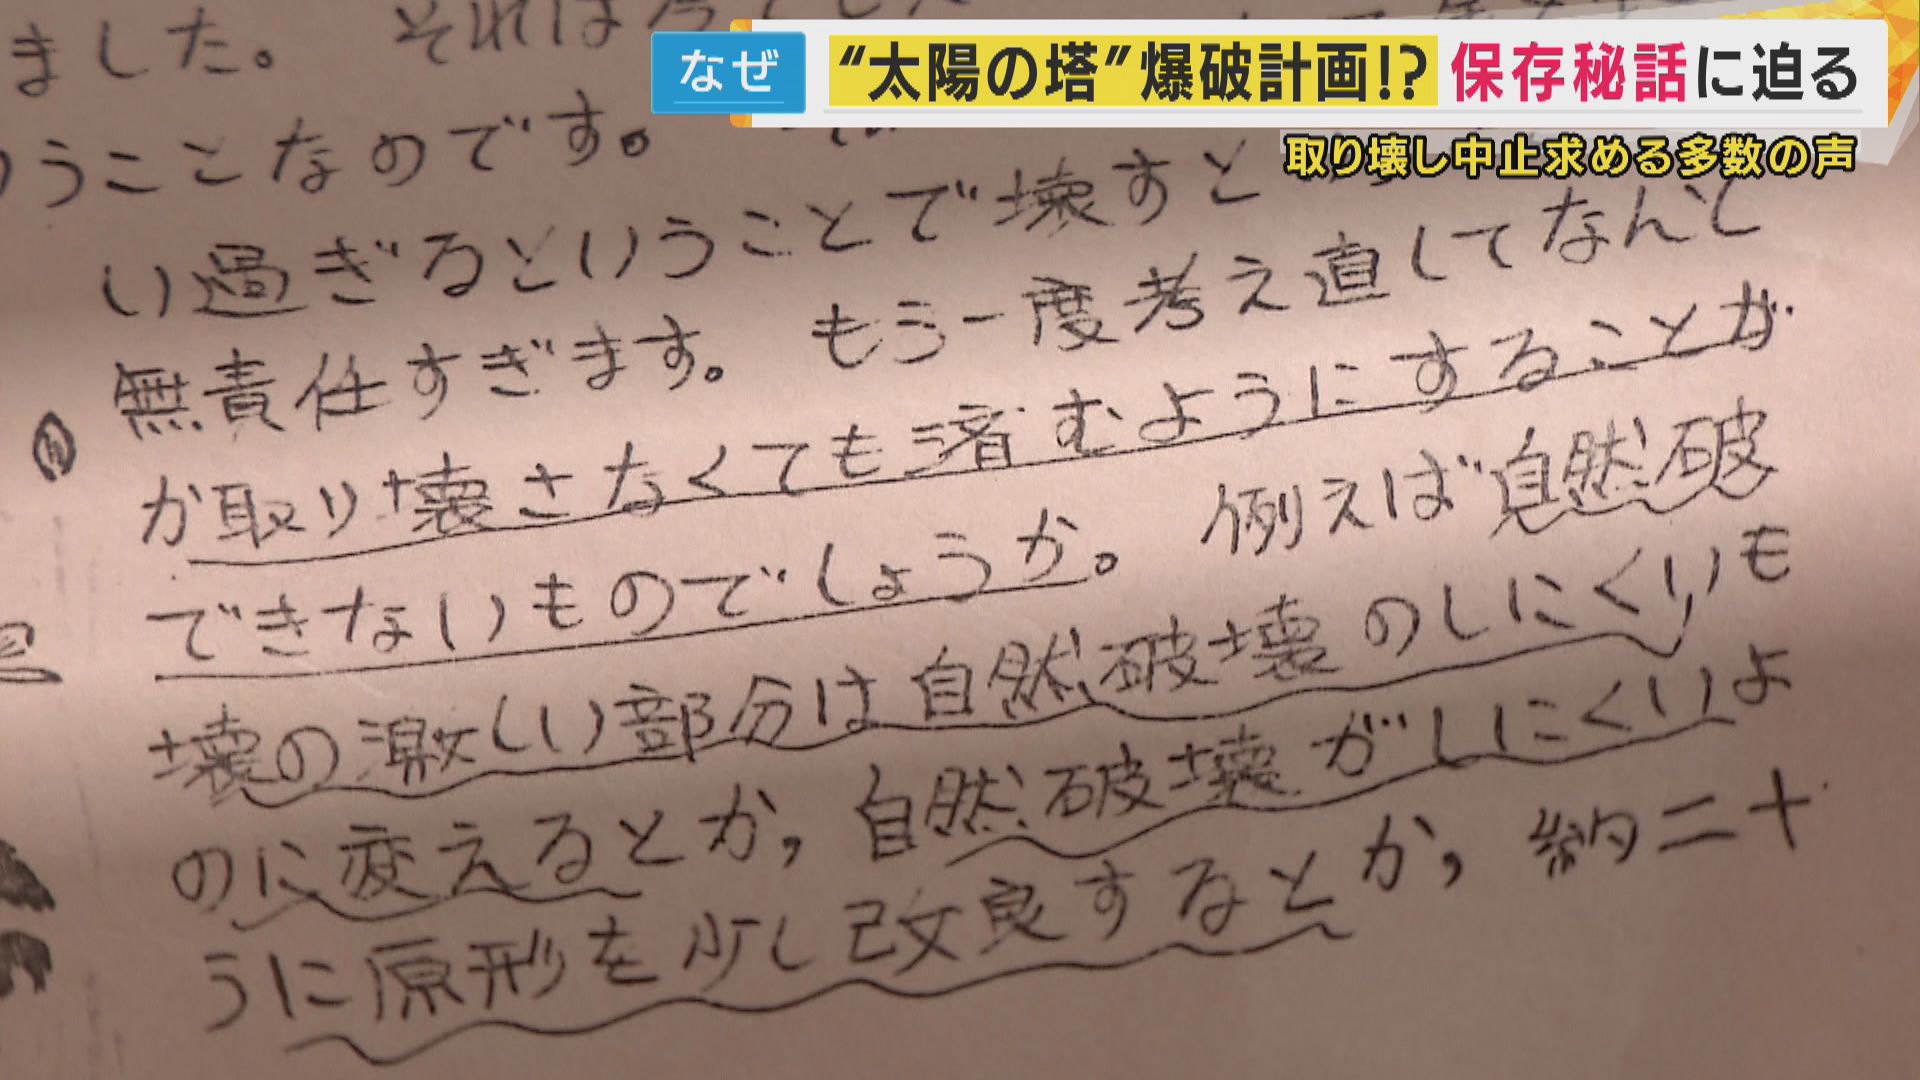 なぜ
“太陽の塔”爆破計画!?保存秘話に迫る
取り壊し中止求める多数の声
ました。 それは
うことなのです。
い過ぎるということで壊すと
無責任すぎます。 もう一度考え直してなんと
か取り壊さなくても済むようにすることが
できないものでしょうか。 例えば自然破
壊の激しい部分は自然破壊のしにくいも
のに変えるとか，自然破壊がしにくいよ
うに原形を少し改良するとか，約二十